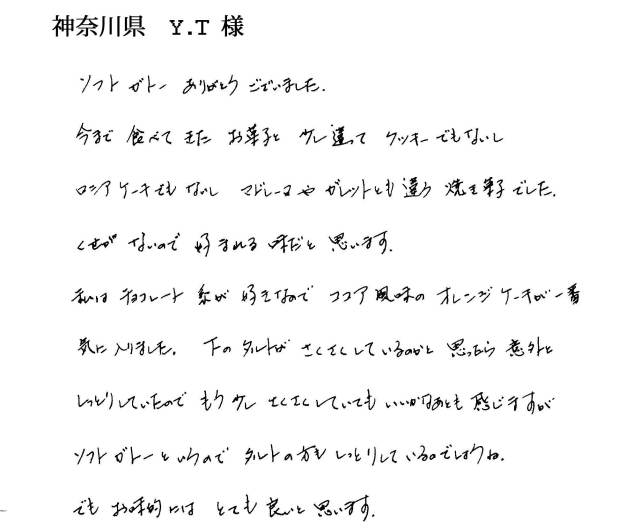 神奈川県 Y.T 様
ソフト ガトー ありがとう ございました.
今まで 食べて きた お菓子と 少し違って クッキー でもないし
ロシア ケーキでも ないし マドレーヌや ガレットとも 違う 焼き菓子でした.
くせが ないので 好まれる 味だと 思います.
私は チョコレート系が 好きなので ココア風味の オレンジ ケーキが 一番
気に入りました. 下の タルトが さくさくしているのかと 思ったら 意外と
しっとりしていたので もう少し さくさくしていても いいかなあとも 感じますが
ソフト ガトーと いうので タルトの方も しっとりしているのでしょうね.
でも お味的には とても 良いと 思います.